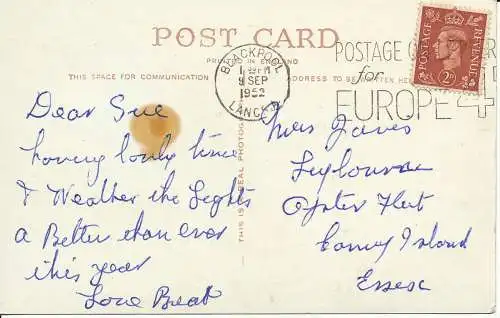 POST CARD
PRINTED IN ENGLAND
THIS SPACE FOR COMMUNICATION
ADDRESS TO BE WRITTEN HERE
BLACKPOOL
9 SEP
1952
LANCS
POSTAGE
for
EUROPE 4
POSTAGE
REVENUE
2D
THIS IS A REAL PHOTOGRAPH
Dear Sue
having lovely time
& Weather the Lights
a Better than ever
this year
Love Beat
Mrs James
Oyster Fleet
Canvey Island
Essex